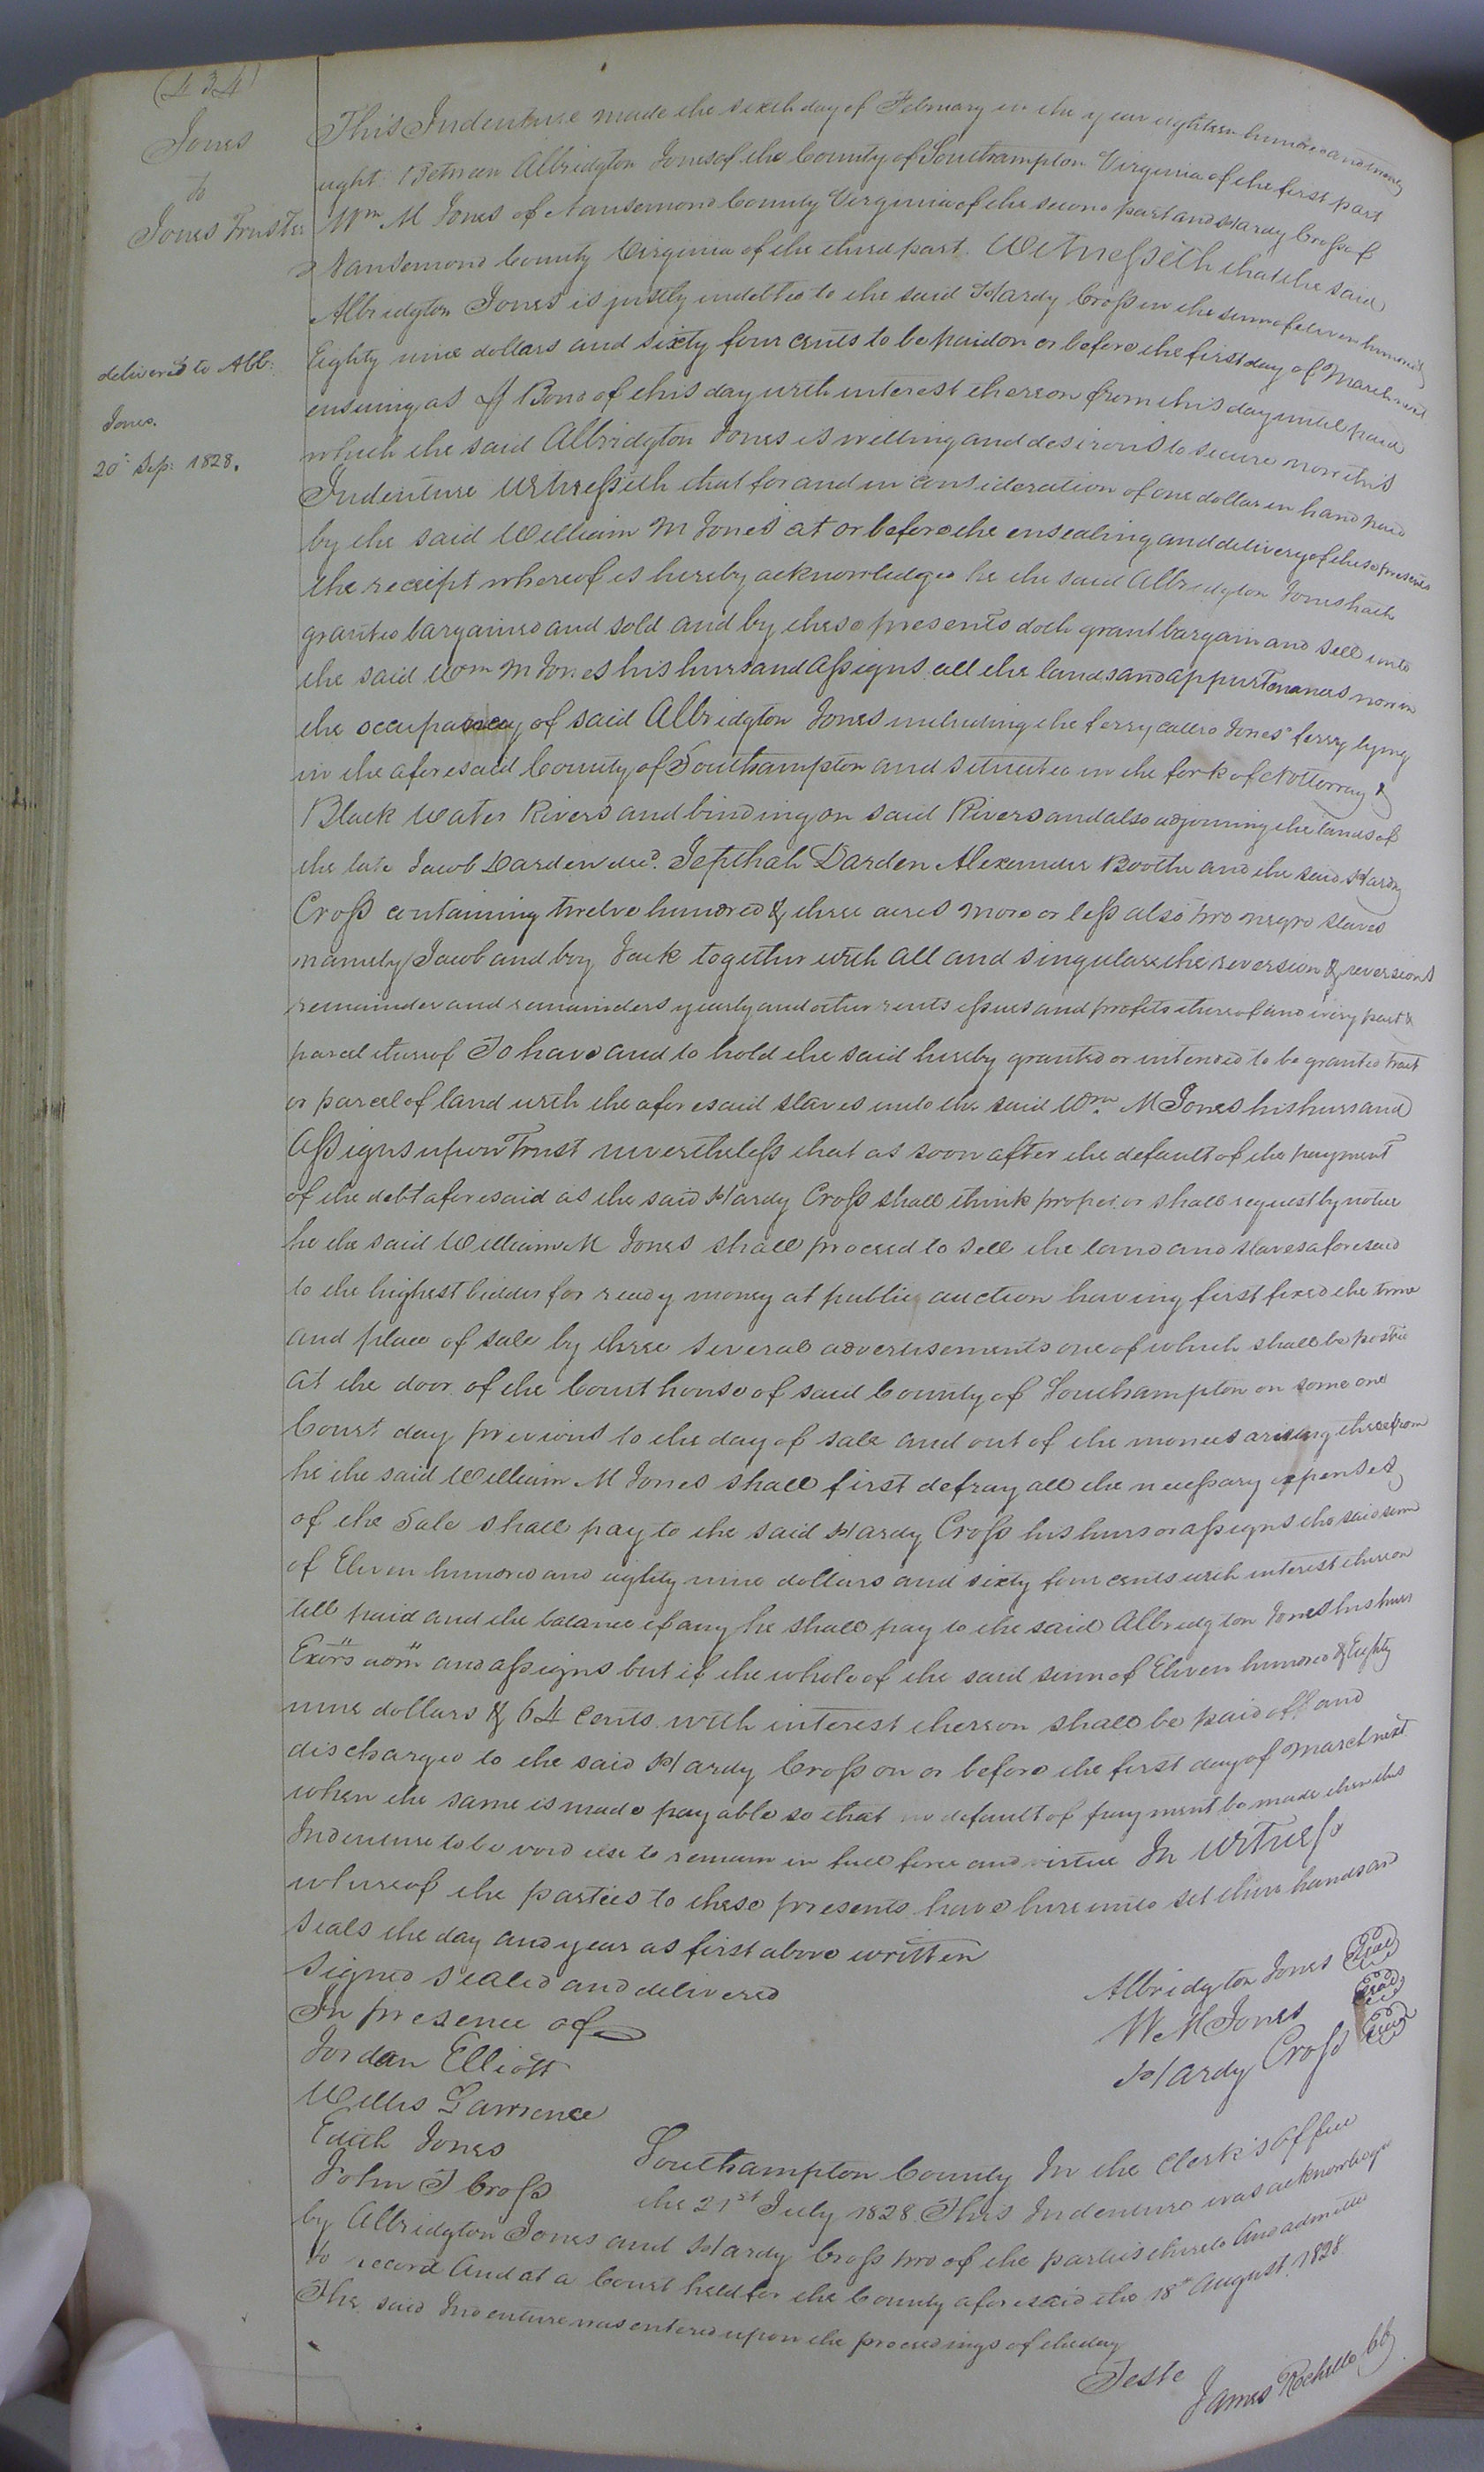 (434)
Jones
to
Jones Trustee
delivered to Alb:
Jones.
20th Sep: 1828.
This Indenture made the sixth day of February in the year eighteen hundred and twenty
eight Between Albridgton Jones of the County of Southampton Virginia of the first part
Wm M Jones of Nansemond County Virginia of the second part and Hardy Cross of
Nansemond County Virginia of the third part. Witnesseth that the said
Albridgton Jones is justly indebted to the said Hardy Cross in the sum of eleven hundred &
Eighty nine dollars and sixty four cents to be paid on or before the first day of March next
ensuing as Bond of this day with interest thereon from this day until paid
which the said Albridgton Jones is willing and desirous to secure now this
Indenture Witnesseth that for and in consideration of one dollar in hand paid
by the said William M Jones at or before the ensealing and delivery of these presents
the receipt whereof is hereby acknowledged he the said Albridgton Jones hath
granted bargained and sold and by these presents doth grant bargain and sell unto
the said Wm M Jones his heirs and assigns all the lands and appurtenances now in
the occupancy of said Albridgton Jones including the ferry called Jones' ferry lying
in the aforesaid County of Southampton and situated in the fork of Nottoway &
Black Water Rivers and binding on said Rivers and also adjoining the lands of
the late Jacob Darden decd. Jepthah Darden Alexander Boothe and the said Hardy
Cross containing twelve hundred & three acres more or less also two negro slaves
namely Jacob and boy Jack together with all and singular the reversion & reversions
remainder and remainders yearly and other rents issues and profits thereof and every part &
parcel thereof To have and to hold the said hereby granted or intended to be granted tract
or parcel of land with the aforesaid slaves unto the said Wm. M Jones his heirs and
Assigns upon Trust nevertheless that as soon after the default of the payment
of the debt aforesaid as the said Hardy Cross shall think proper or shall request by notice
he the said William M Jones shall proceed to sell the land and slaves aforesaid
to the highest bidder for ready money at public auction having first fixed the time
and place of sale by three several advertisements one of which shall be posted
at the door of the Court house of said County of Southampton on some one
Court day previous to the day of sale and out of the monies arising therefrom
he the said William M Jones shall first defray all the necessary expenses
of the Sale shall pay to the said Hardy Cross his heirs or assigns the said sum
of Eleven hundred and eighty nine dollars and sixty four cents with interest thereon
till paid and the balance if any he shall pay to the said Albridgton Jones his heirs
Exors adm and assigns but if the whole of the said sum of Eleven hundred & Eighty
nine dollars & 64 Cents with interest thereon shall be paid off and
discharged to the said Hardy Cross on or before the first day of March next
when the same is made payable so that no default of payment be made then this
Indenture to be void else to remain in full force and virtue In Witness
whereof the parties to these presents have hereunto set their hands and
seals the day and year as first above written
Signed sealed and delivered
In presence of
Jordan Elliott
Willis Lawrence
Edith Jones
John T Cross
Albridgton Jones Seal
W M Jones Seal
Hardy Cross Seal
Southampton County In the Clerk's office
the 21st July 1828 This Indenture was acknowledged
by Albridgton Jones and Hardy Cross two of the parties thereto And admitted
to record And at a Court held for the County aforesaid the 18th August 1828
The said Indenture was entered upon the proceedings of the day
Teste
James Rochelle CC